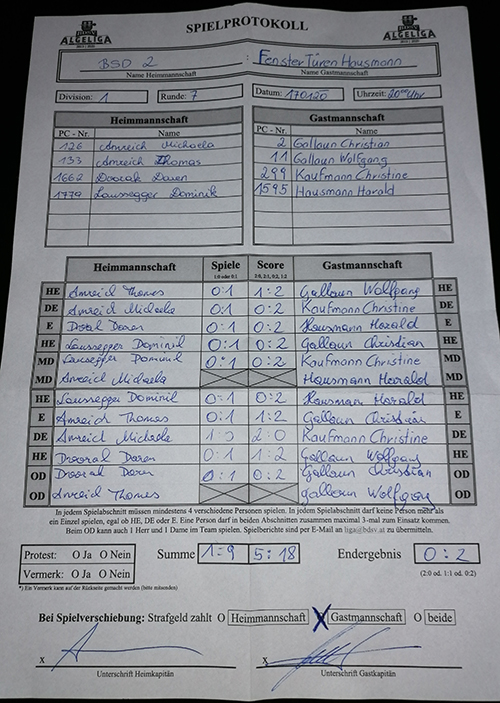 SPIELPROTOKOLL
ALGELIGA ALGELIGA
BSD 2 : Fenster Türen Hausmann
Name Heimmannschaft Name Gastmannschaft
Division: 1 Runde: 7 Datum: 170120 Uhrzeit: 20⁰⁰Uhr
Heimmannschaft Gastmannschaft
PC - Nr. Name PC - Nr. Name
126 Anreich Michaela 2 Galloun Christian
133 Anreich Thomas 11 Galloun Wolfgang
1662 Doorak Daren 299 Kaufmann Christine
1779 Laussegger Dominik 1595 Hausmann Harald
Heimmannschaft Spiele Score Gastmannschaft
1:0 oder 0:1 2:0, 2:1, 0:2, 1:2
HE Anreich Thomas 0:1 1:2 Galloun Wolfgang HE
DE Anreich Michaela 0:1 0:2 Kaufmann Christine DE
E Daren 0:1 0:2 Hausmann Harald E
HE Laussegger Dominik 0:1 0:2 Galloun Christian HE
MD Laussegger Dominik 0:1 0:2 Kaufmann Christine MD
MD Anreich Michaela Hausmann Harald MD
HE Laussegger Dominik 0:1 0:2 Hausmann Harald HE
E Anreich Thomas 0:1 1:2 Galloun Christian E
DE Anreich Michaela 1:0 2:0 Kaufmann Christine DE
HE Doorak Daren 0:1 1:2 Galloun Wolfgang HE
OD Doorak Daren 0:1 0:2 Galloun Christian OD
OD Anreich Thomas Galloun Wolfgang OD
In jedem Spielabschnitt müssen mindestens 4 verschiedene Personen spielen. In jedem Spielabschnitt darf keine Person mehr als
ein Einzel spielen, egal ob HE, DE oder E. Eine Person darf in beiden Abschnitten zusammen maximal 3-mal zum Einsatz kommen.
Beim OD kann auch 1 Herr und 1 Dame im Team spielen. Spielberichte sind per E-Mail an liga@bdsv.at zu übermitteln.
Protest: O Ja O Nein Summe 1:9 5:18 Endergebnis 0:2
Vermerk: O Ja O Nein (2:0 od. 1:1 od. 0:2)
*) Ein Vermerk kann auf der Rückseite gemacht werden (bitte mitsenden)
Bei Spielverschiebung: Strafgeld zahlt O Heimmannschaft X Gastmannschaft O beide
x x
Unterschrift Heimkapitän Unterschrift Gastkapitän